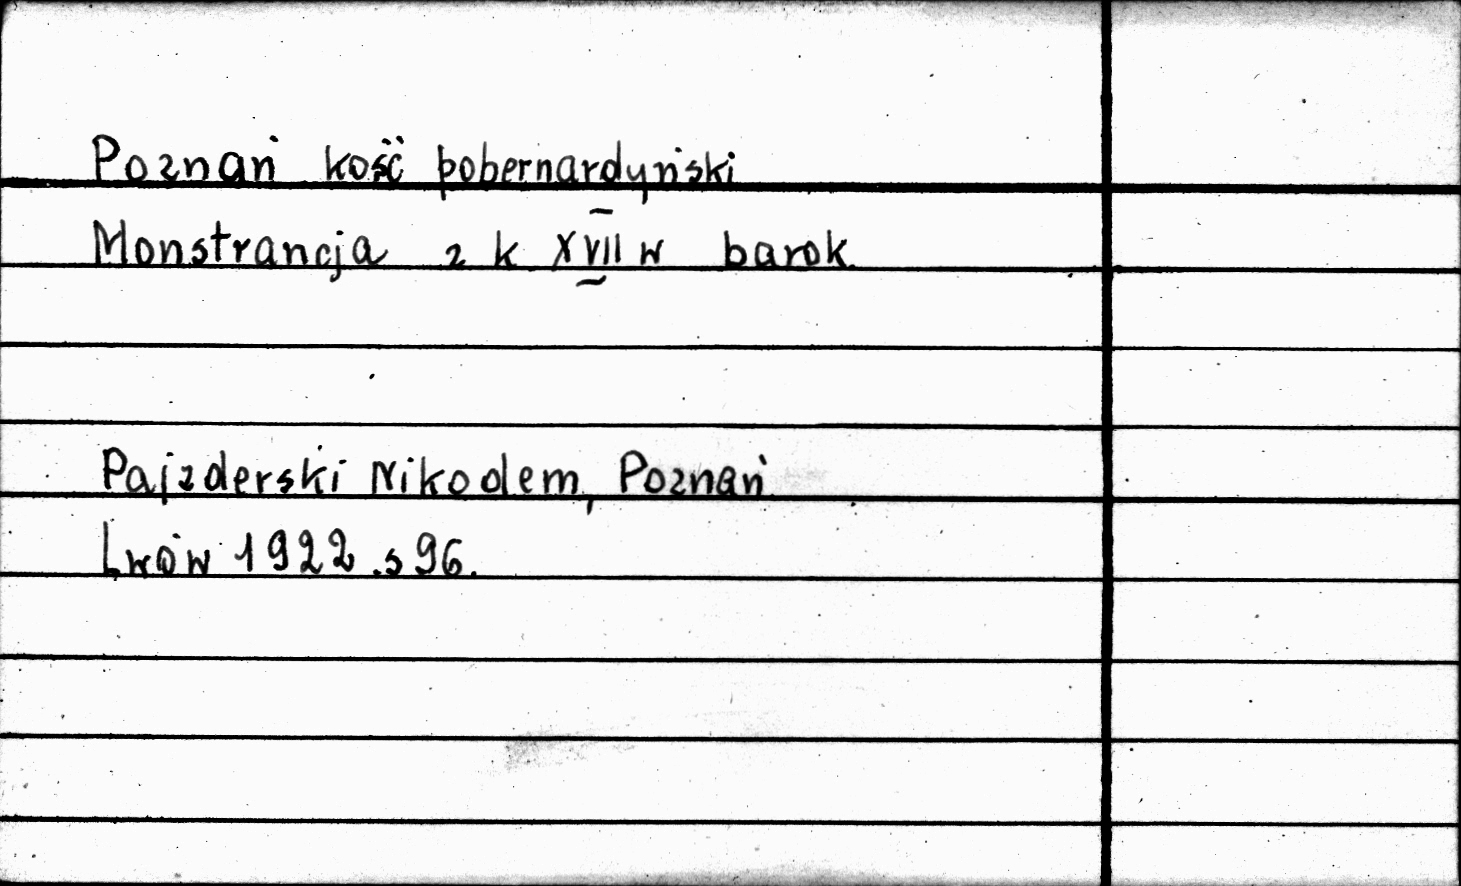 Poznań kość pobernardyński
Monstrancja z k XVII w barok
Pajzderski Nikodem, Poznań
Lwów 1922 .s 96.